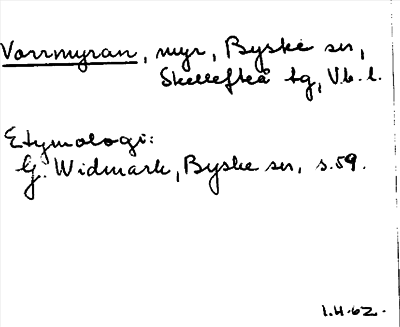 Vorrmyran, myr, Byske sn,
Skellefteå tg, Vb. l.
Etymologi:
G. Widmark, Byske sn, s. 59.
1.4.62.